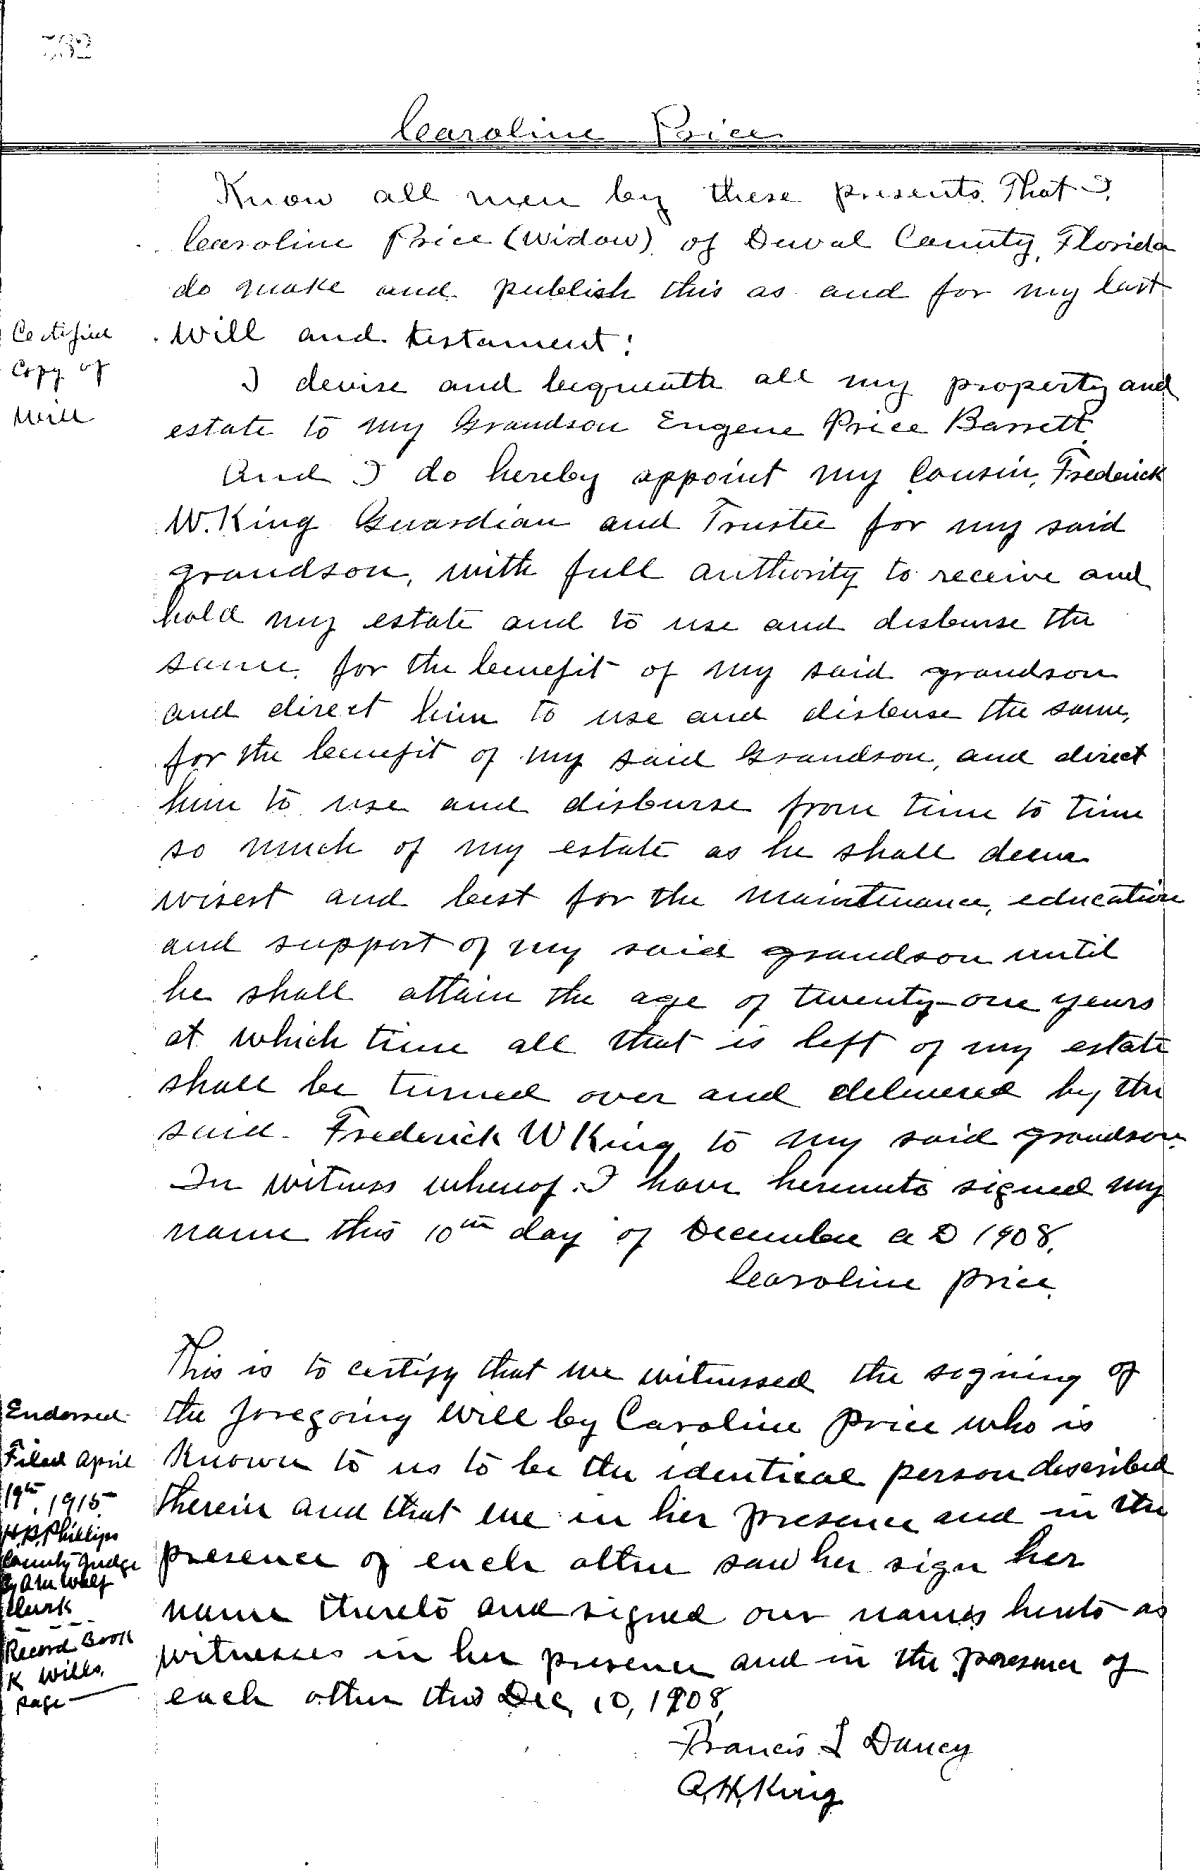 382
Caroline Price
Know all men by these presents. That I,
Caroline Price (widow) of Duval County, Florida
do make and publish this as and for my last
Will and testament:
Certified
Copy of
Will
I devise and bequeath all my property and
estate to my Grandson Eugene Price Barrett.
And I do hereby appoint my Cousin, Frederick
W. King Guardian and Trustee for my said
grandson, with full authority to receive and
hold my estate and to use and disburse the
same, for the benefit of my said grandson
and direct him to use and disburse the same,
for the benefit of my said Grandson, and direct
him to use and disburse from time to time
so much of my estate as he shall deem
wisest and best for the maintenance, education
and support of my said grandson until
he shall attain the age of twenty-one years
at which time all that is left of my estate
shall be turned over and delivered by the
said Frederick W King to my said grandson.
In witness whereof I have hereunto signed my
name this 10th day of December A D 1908.
Caroline Price.
This is to certify that we witnessed the signing of
the foregoing Will by Caroline Price who is
known to us to be the identical person described
therein and that we in her presence and in the
presence of each other saw her sign her
name thereto and signed our names hereto as
witnesses in her presence and in the presence of
each other this Dec, 10, 1908,
Francis L Dancy
A. H. King
Endorsed
Filed April
19th, 1915
H.P. Phillips
County Judge
By
Clerk
Record Book
K Wills,
page —